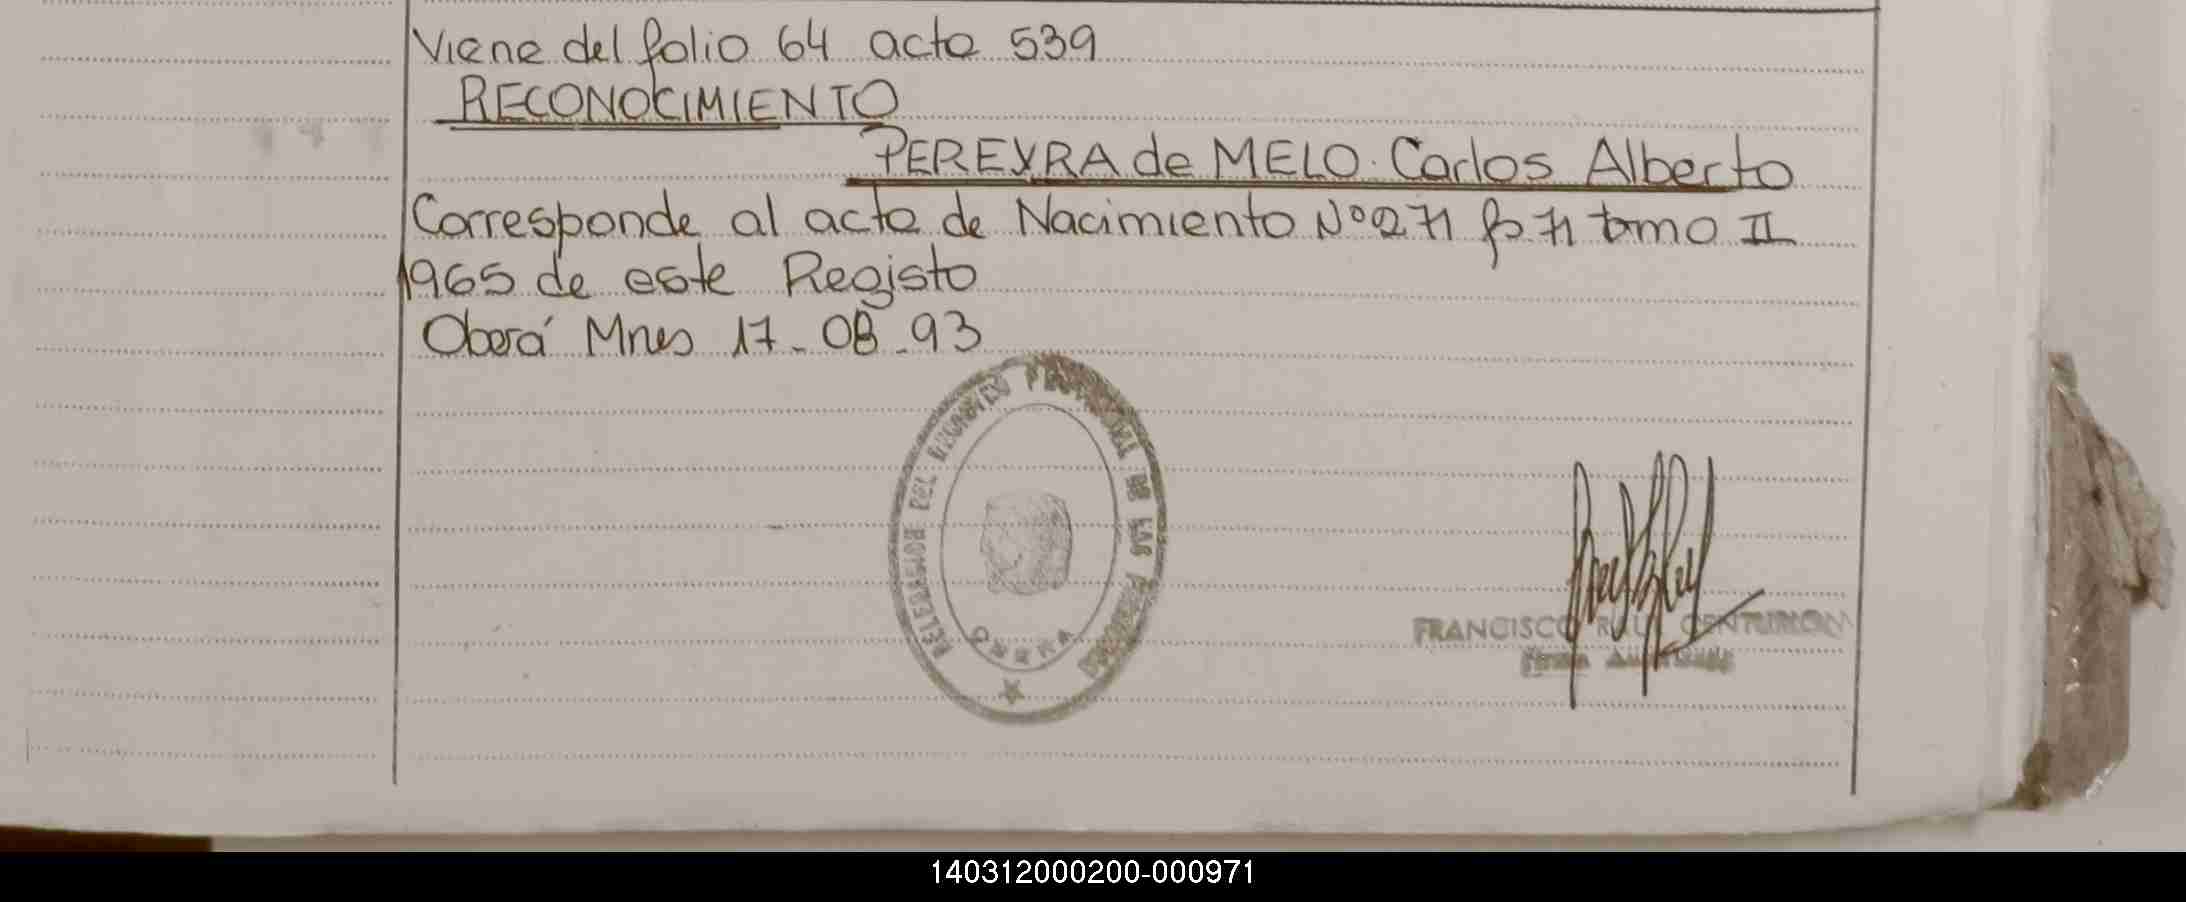 Viene del folio 64 acta 539
RECONOCIMIENTO
PEREYRA de MELO. Carlos Alberto
Corresponde al acta de Nacimiento Nº 271 fº 71 tomo II
1965 de este Registo
Oberá Mnes 17-08-93
DELEGACION DEL REGISTRO PROVINCIAL DE LAS PERSONAS
OBERA
FRANCISCO RAUL CENTURION
Firma Autorizada
140312000200-000971